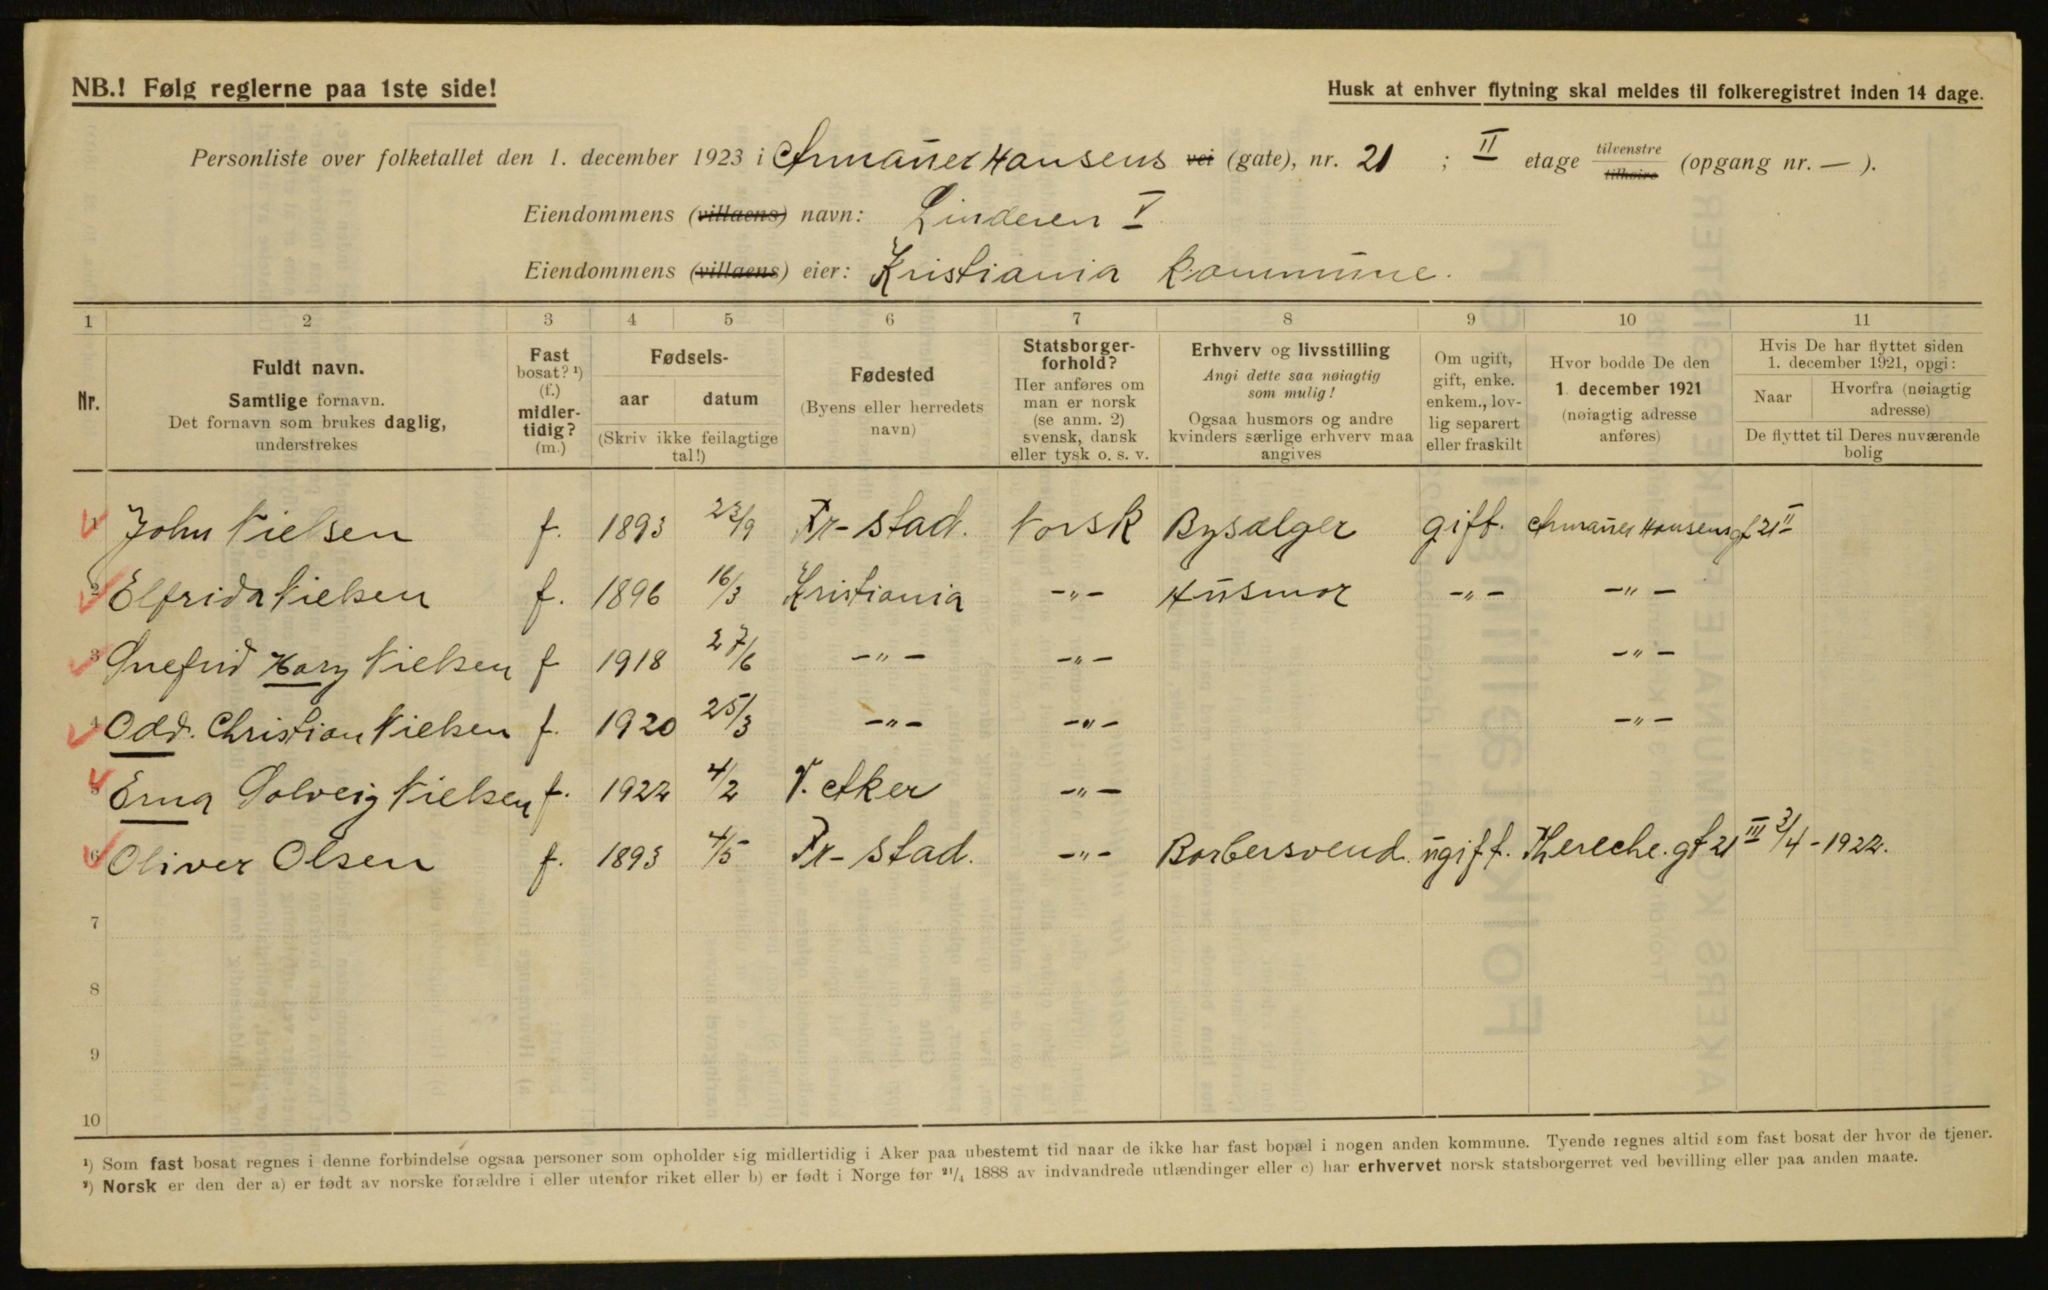 NB.! Følg reglerne paa 1ste side!
Husk at enhver flytning skal meldes til folkeregistret inden 14 dage.
Personliste over folketallet den 1. december 1923 i Armauer Hansens vei (gate), nr. 21 ; II etage tilvenstre tilhøire (opgang nr. — ).
Eiendommens (villaens) navn: Linderen V
Eiendommens (villaens) eier: Kristiania kommune.
1 2 3 4 5 6 7 8 9 10 11
Nr.
Fuldt navn.
Samtlige fornavn.
Det fornavn som brukes daglig,
understrekes
Fast
bosat? ¹)
(f.)
midler-
tidig?
(m.)
Fødsels-
aar datum
(Skriv ikke feilagtige
tal!)
Fødested
(Byens eller herredets
navn)
Statsborger-
forhold?
Her anføres om
man er norsk
(se anm. 2)
svensk, dansk
eller tysk o. s. v.
Erhverv og livsstilling
Angi dette saa nøiagtig
som mulig!
Ogsaa husmors og andre
kvinders særlige erhverv maa
angives
Om ugift,
gift, enke.
enkem., lov-
lig separert
eller fraskilt
Hvor bodde De den
1 december 1921
(nøiagtig adresse
anføres)
Hvis De har flyttet siden
1. december 1921, opgi:
Naar
Hvorfra (nøiagtig
adresse)
De flyttet til Deres nuværende
bolig
1 John Nielsen f. 1893 23/9 Fr-stad. Norsk Bysælger gift. Armauer Hansens gt 21 II
2 Elfrida Nielsen f. 1896 16/3 Kristiania -„- Husmor -„- -„-
3 Hary Nielsen f 1918 27/6 -„- -„- -„-
4 Odd. Christian Nielsen f. 1920 25/3 -„- -„- -„-
5 Erna Solveig Nielsen f. 1922 4/2 V. Aker -„-
6 Oliver Olsen f. 1893 4/5 Fr-stad. -„- Barbersvend. ugift. gt 21 III 3/4-1922.
7
8
9
10
¹) Som fast bosat regnes i denne forbindelse ogsaa personer som opholder sig midlertidig i Aker paa ubestemt tid naar de ikke har fast bopæl i nogen anden kommune. Tyende regnes altid som fast bosat der hvor de tjener.
²) Norsk er den der a) er født av norske forældre i eller utenfor riket eller b) er født i Norge før ²¹/₄ 1888 av indvandrede utlændinger eller c) har erhvervet norsk statsborgerret ved bevilling eller paa anden maate.